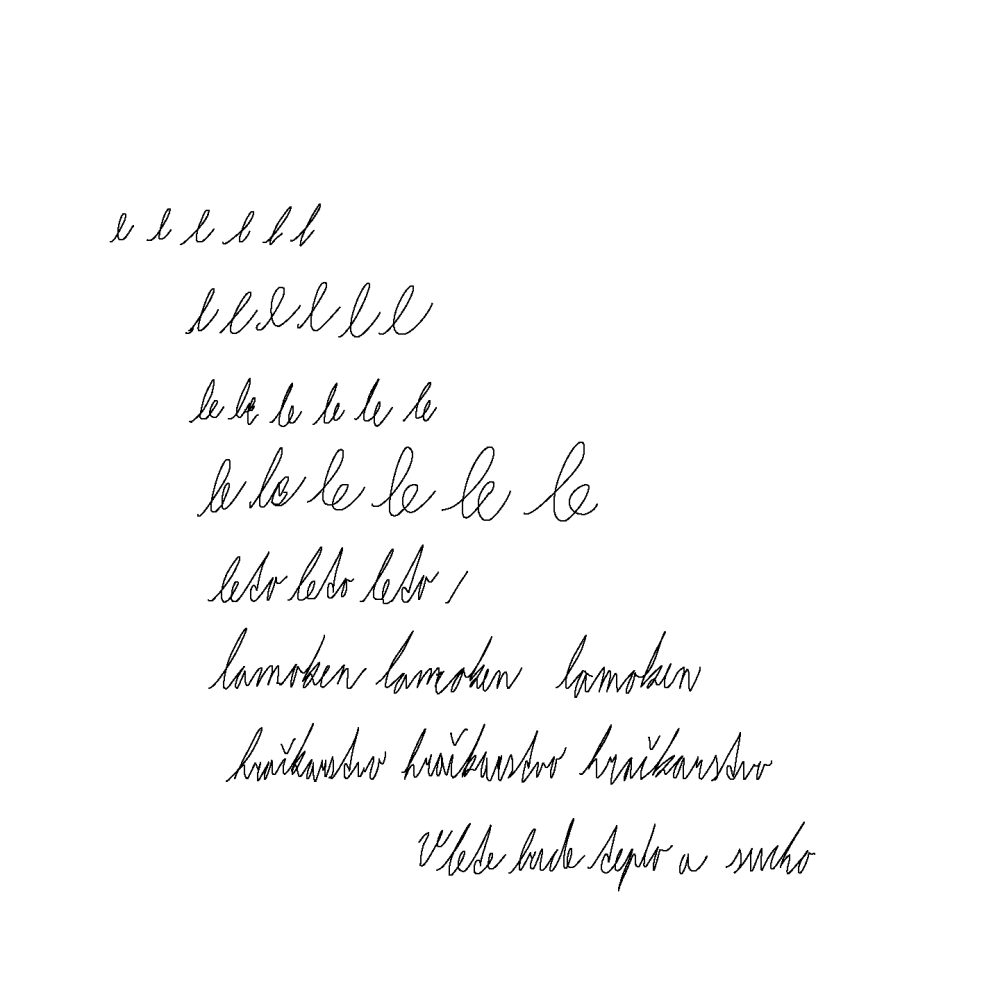 l l l l l l
l l l l l l
le le le le le le
le le le le le le
leto leto leto /
lamoken lamoken lamoken
hračkarstvo hračkarstvo hračkarstvo
V lete bude teplo a sucho